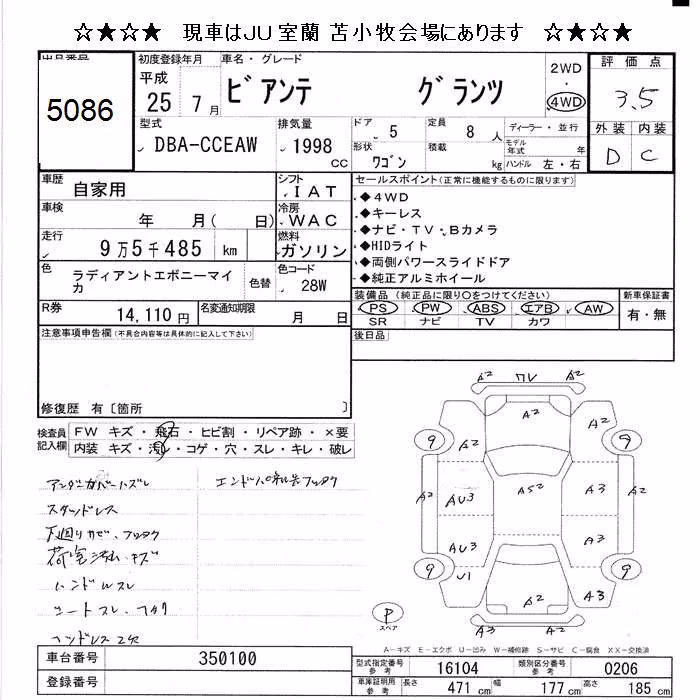 ☆★☆★ 現車はJU室蘭 苫小牧会場にあります ☆★☆★
出品番号
5086
初度登録年月
平成
25年 7月
車名・グレード
ビアンテ グランツ
2WD
・
4WD
評価点
3.5
外装 内装
D C
型式
DBA-CCEAW
排気量
1998
cc
ドア
5
定員
8人
形状
ワゴン
積載
kg
ディーラー・並行
モデル年式 年
ハンドル 左・右
車歴
自家用
シフト
IAT
車検
年 月( 日)
冷房
WAC
走行
9万5千485 km
燃料
ガソリン
色
ラディアントエボニーマイカ
色替
色コード
28W
R券
14,110円
名変通知期限
月 日
セールスポイント(正常に機能するものに限ります)
◆4WD
◆キーレス
◆ナビ・TV・Bカメラ
◆HIDライト
◆両側パワースライドドア
◆純正アルミホイール
装備品(純正品に限り○をつけてください)
PS PW ABS エアB AW
SR ナビ TV カワ
新車保証書
有・無
後日品
注意事項申告欄(不具合内容等は具体的に記入して下さい)
修復歴 有〔箇所 〕
検査員記入欄
FW キズ・飛石・ヒビ割・リペア跡・×要
内装 キズ・汚レ・コゲ・穴・スレ・キレ・破レ
アンダーカバーハズレ
スタッドレス
下廻りサビ、フショク
荷室汚レ・キズ
ハンドルスレ
シートスレ、
A2 A2
A2
A2 A2
9 9
A2 AU3 A52 A3 A2
AU3 A3
9 9
U1
A3 A2 A3
A3 A2
P
スペア
A-キズ E-エクボ U-凹み W-補修跡 S-サビ C-腐食 XX-交換済
車台番号
350100
登録番号
型式指定番号
参考
16104
類別区分番号
参考
0206
車庫証明用
参考
長さ
471 cm
幅
177 cm
高さ
185 cm